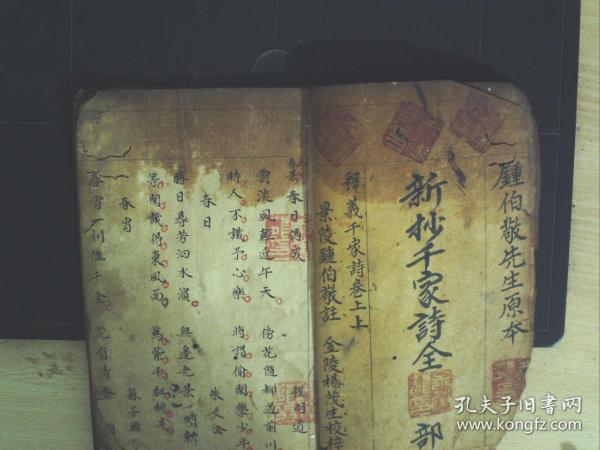 鍾伯敬先生原本
新抄千家詩全部
釋義千家詩卷上上
景陵鍾伯敬註 金陵楊茂生校梓
春日偶成 程明道
雲淡風輕近午天 傍花隨柳過前川
時人不識予心樂 將謂偷閑學少年
春日 朱文公
勝日尋芳泗水濱 無邊光景一時新
等閑識得東風面 萬紫千紅總是
春宵 蘇子瞻
春宵一刻值千金 花有清香
孔夫子旧书网
www.kongfz.com